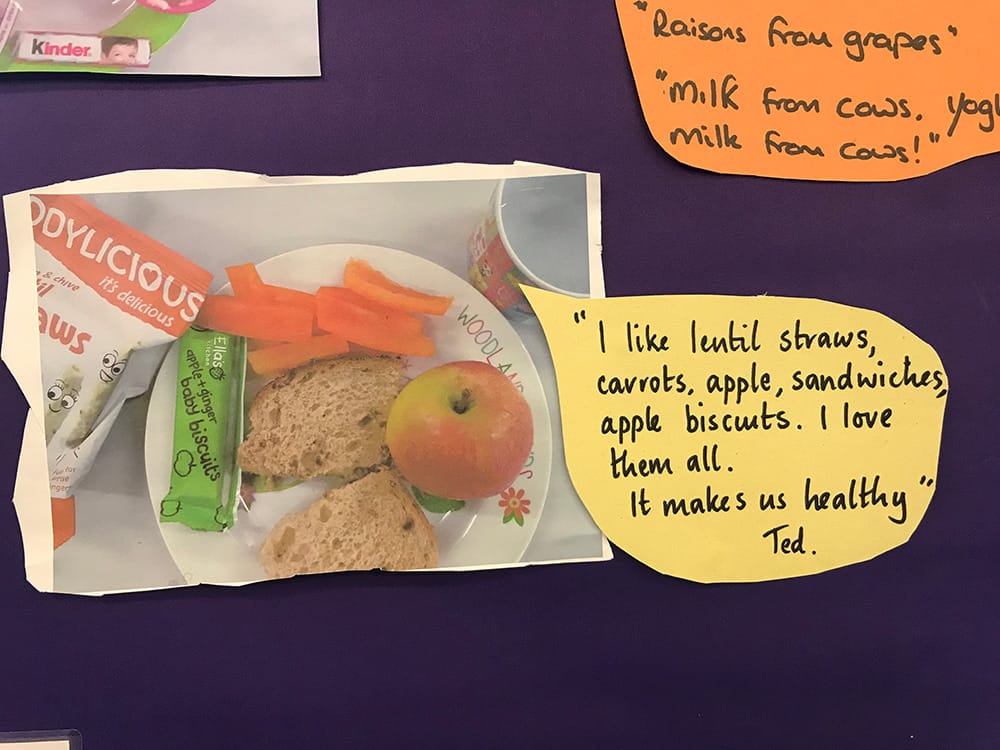 Kinder
"Raisons from grapes"
"Milk from cows, yog
milk from cows!"
ODYLICIOUS
it's delicious
& chive
til
aws
Ellas
kitchen
apple+ginger
baby biscuits
WOODLAN
DS
"I like lentil straws,
carrots, apple, sandwiches,
apple biscuits. I love
them all.
It makes us healthy"
Ted.